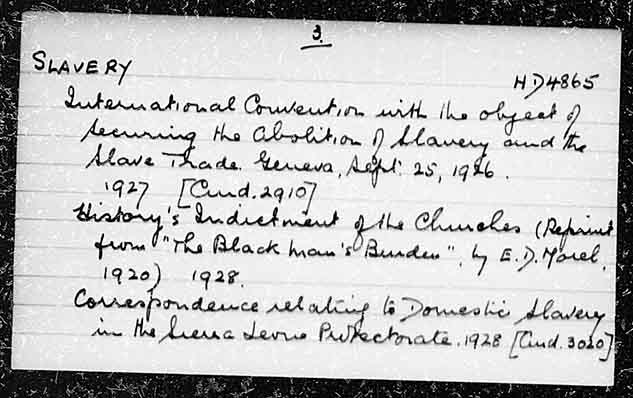 3.
SLAVERY
HD4865
International Convention with the object of
securing the Abolition of Slavery and the
Slave Trade. Geneva, Sept. 25, 1926.
1927 [Cmd. 2910]
History's Indictment of the Churches (Reprint
from "The Black Man's Burden", by E.D. Morel,
1920) 1928.
Correspondence relating to Domestic Slavery
in the Sierra Leone Protectorate. 1928 [Cmd. 3020]